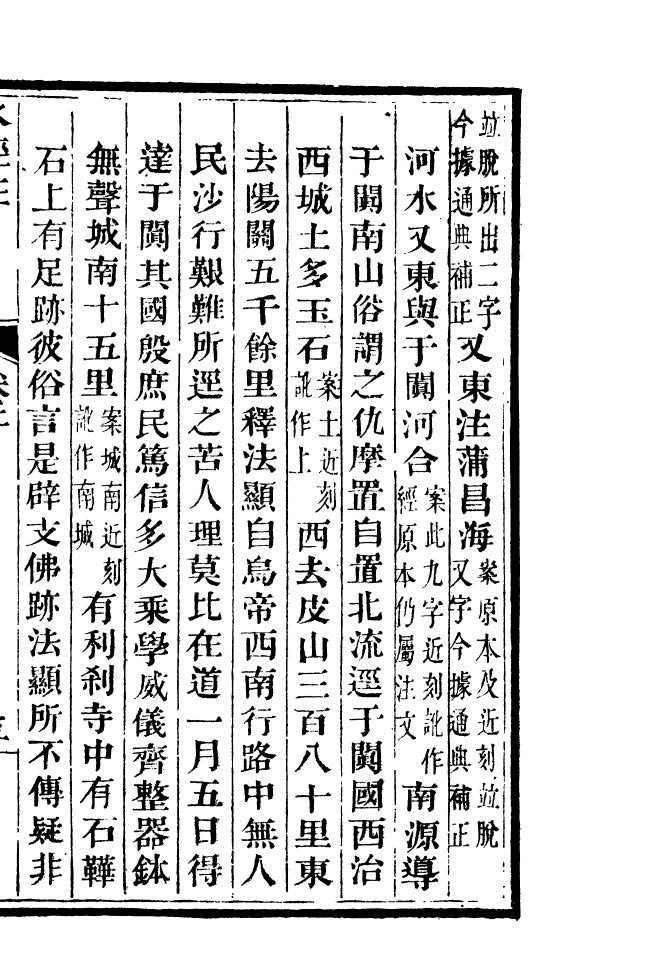 並脫所出二字今據通典補正又東注蒲昌海案原本及近刻並脫又字今據通典補正
河水又東與于闐河合案此九字近刻訛作經原本仍屬注文南源導
于闐南山俗謂之仇摩置自置北流逕于闐國西治
西城土多玉石案土近刻訛作上西去皮山三百八十里東
去陽關五千餘里釋法顯自烏帝西南行路中無人
民沙行艱難所逕之苦人理莫比在道一月五日得
達于闐其國殷庶民篤信多大乘學威儀齊整器鉢
無聲城南十五里案城南近刻訛作南城有利刹寺中有石鞾
石上有足跡彼俗言是辟支佛跡法顯所不傳疑非